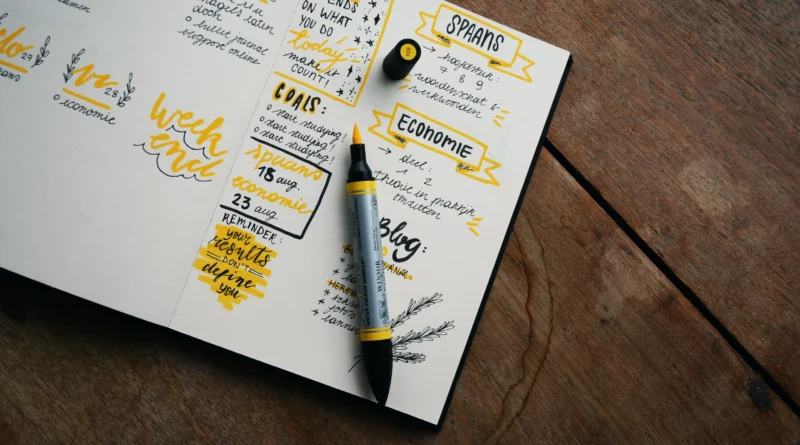 nagels laten
doch
o bullet journal
blogpost online
28
o economie
week
end
ENDS
ON WHAT
YOU DO
today
make it
COUNT!
GOALS:
o start studying!
o start studying!
o start studying!
spaans
18 aug.
economie
23 aug.
REMINDER:
your
results
DON'T
define
you
SPAANS
→ hoofdstuk:
7 8 9
woordenschat &
werkwoorden
ECONOMIE
→ deel:
1 2
theorie in praktijk
omzetten
Blog:
JOURNAL
WINSOR